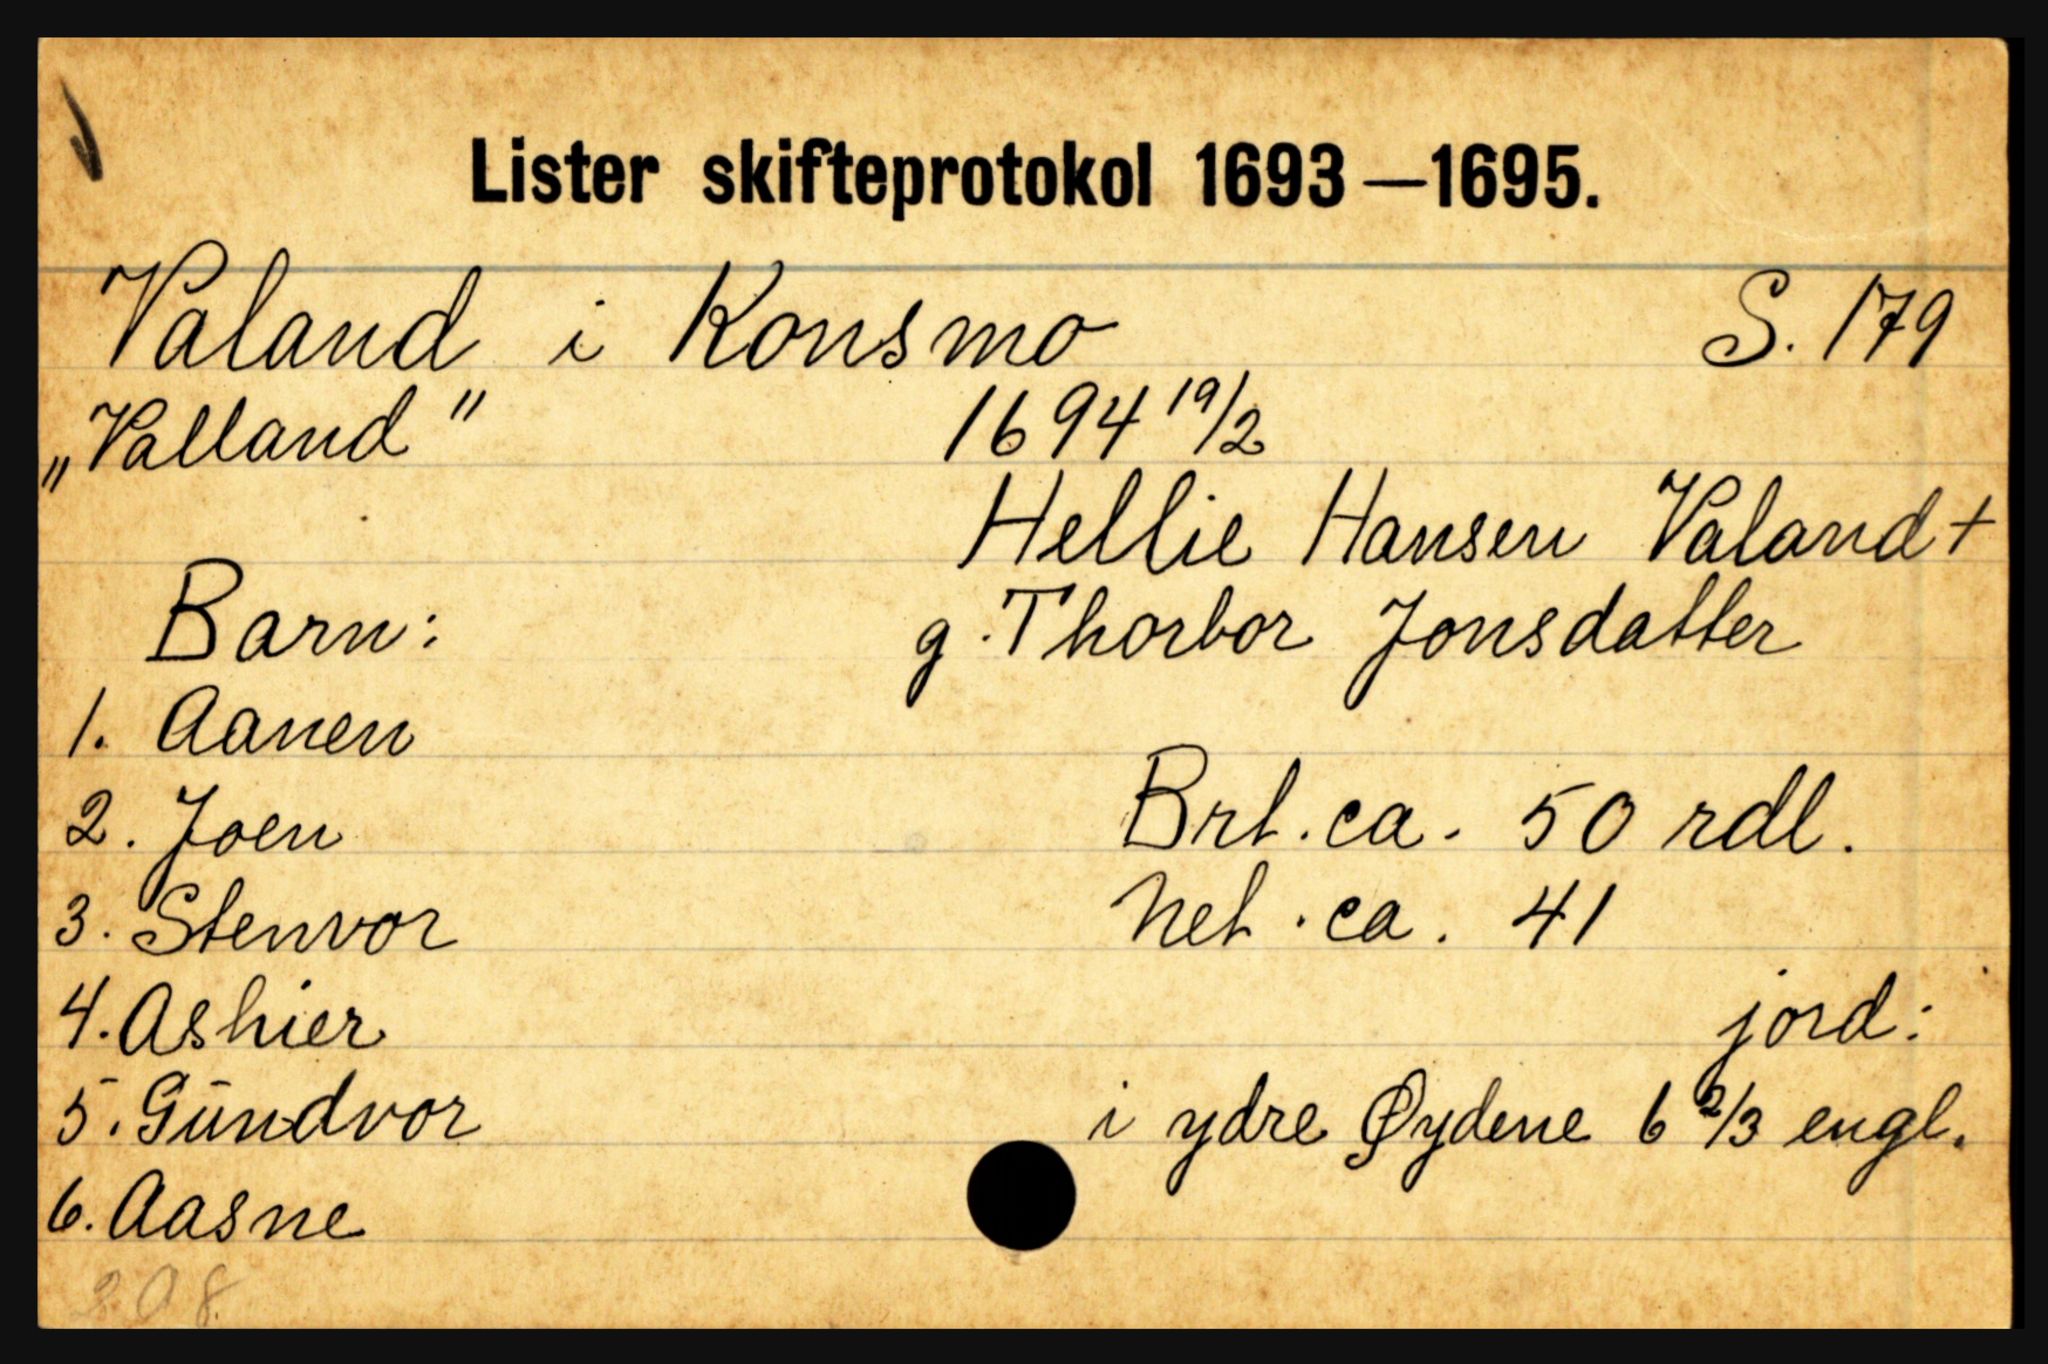 Lister skifteprotokol 1693—1695.
Valand i Konsmo S. 179
„Valland" 1694 19/2
Hellie Hansen Valand +
g. Thorbor Jonsdatter
Barn:
1. Aanen
2. Joen
3. Stenvor
4. Ashier
5. Gūndvor
6. Aasne
Brt. ca. 50 rdl.
Net. ca. 41
jord:
i ydre Øydene 6 2/3 engl.
208